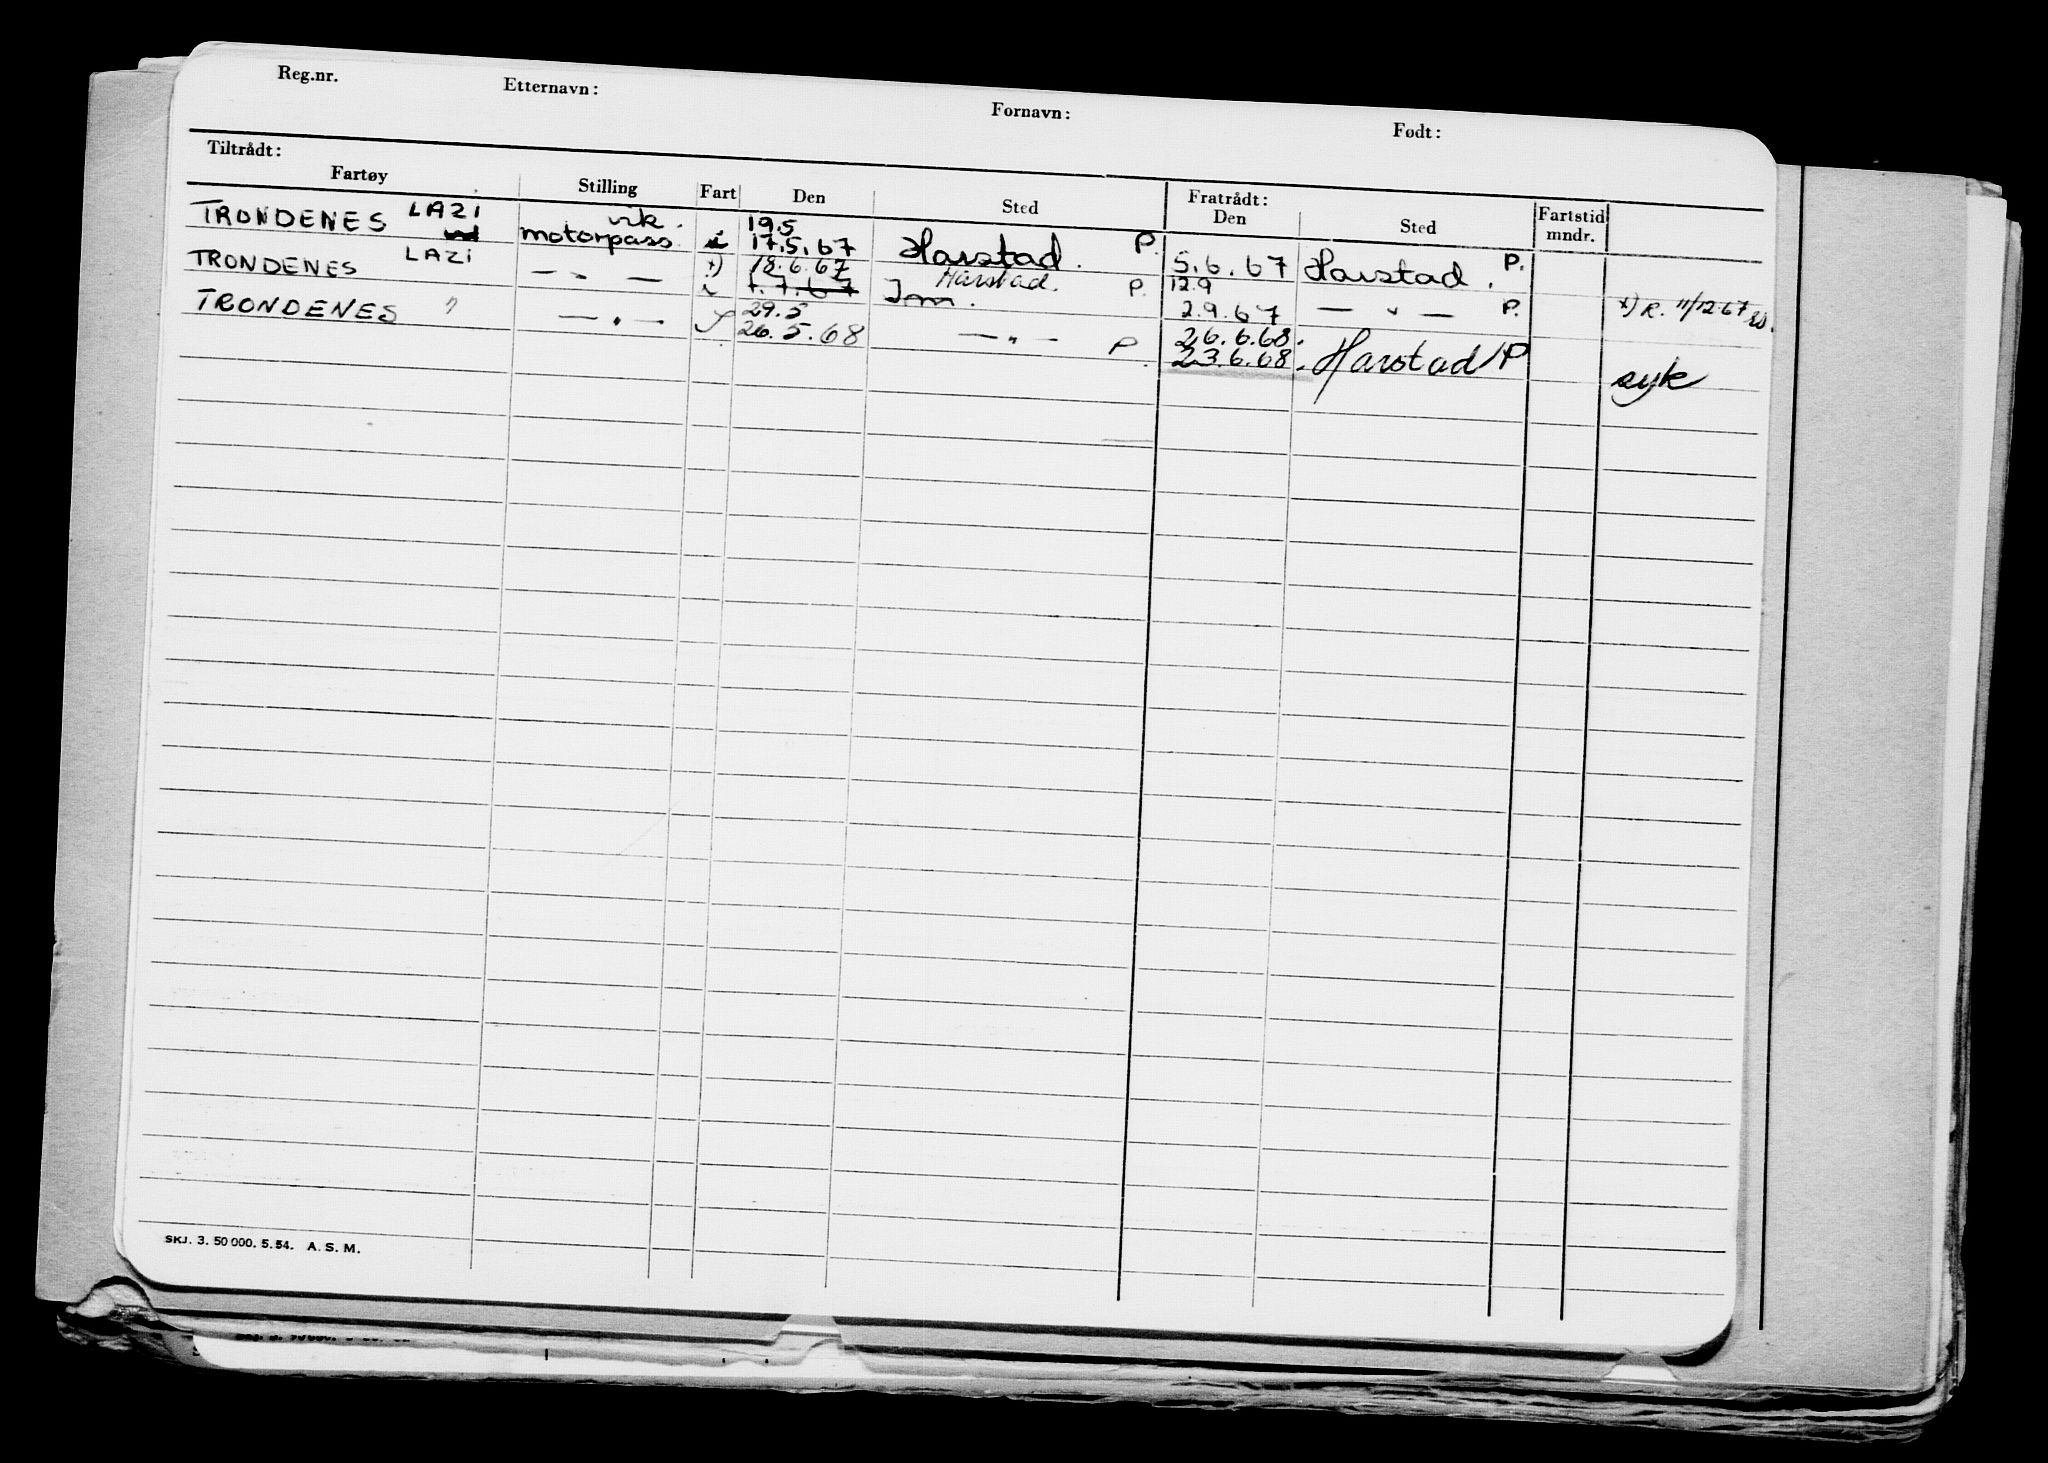 Reg.nr. Etternavn: Fornavn: Født:
Tiltrådt: Fratrådt:
Fartøy Stilling Fart Den Sted Den Sted Fartstid mndr.
TRONDENES LAZI vik. 19.5
motorpass 17.5.67 Harstad. P. 5.6.67 Harstad. P.
TRONDENES LAZI — " — x) 18.6.67 Harstad. P. 12.9
1.7.67 2.9.67 — " — P. x) R. 11/12-67
TRONDENES " — " — 29.5 26.6.68.
26.5.68 — " — P 23.6.68. Harstad/P syk
SKJ. 3. 50 000. 5. 54. A. S. M.